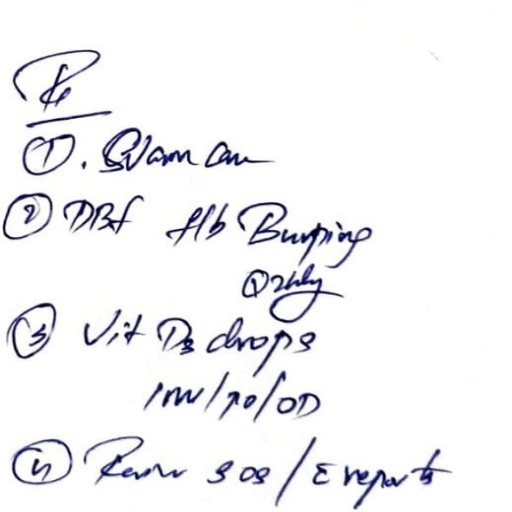 Rx
① . Warm Care
② DBF f/b Burping
Q2hly
③ Vit D3 drops
1ml/PO/OD
④ Review SOS / c reports